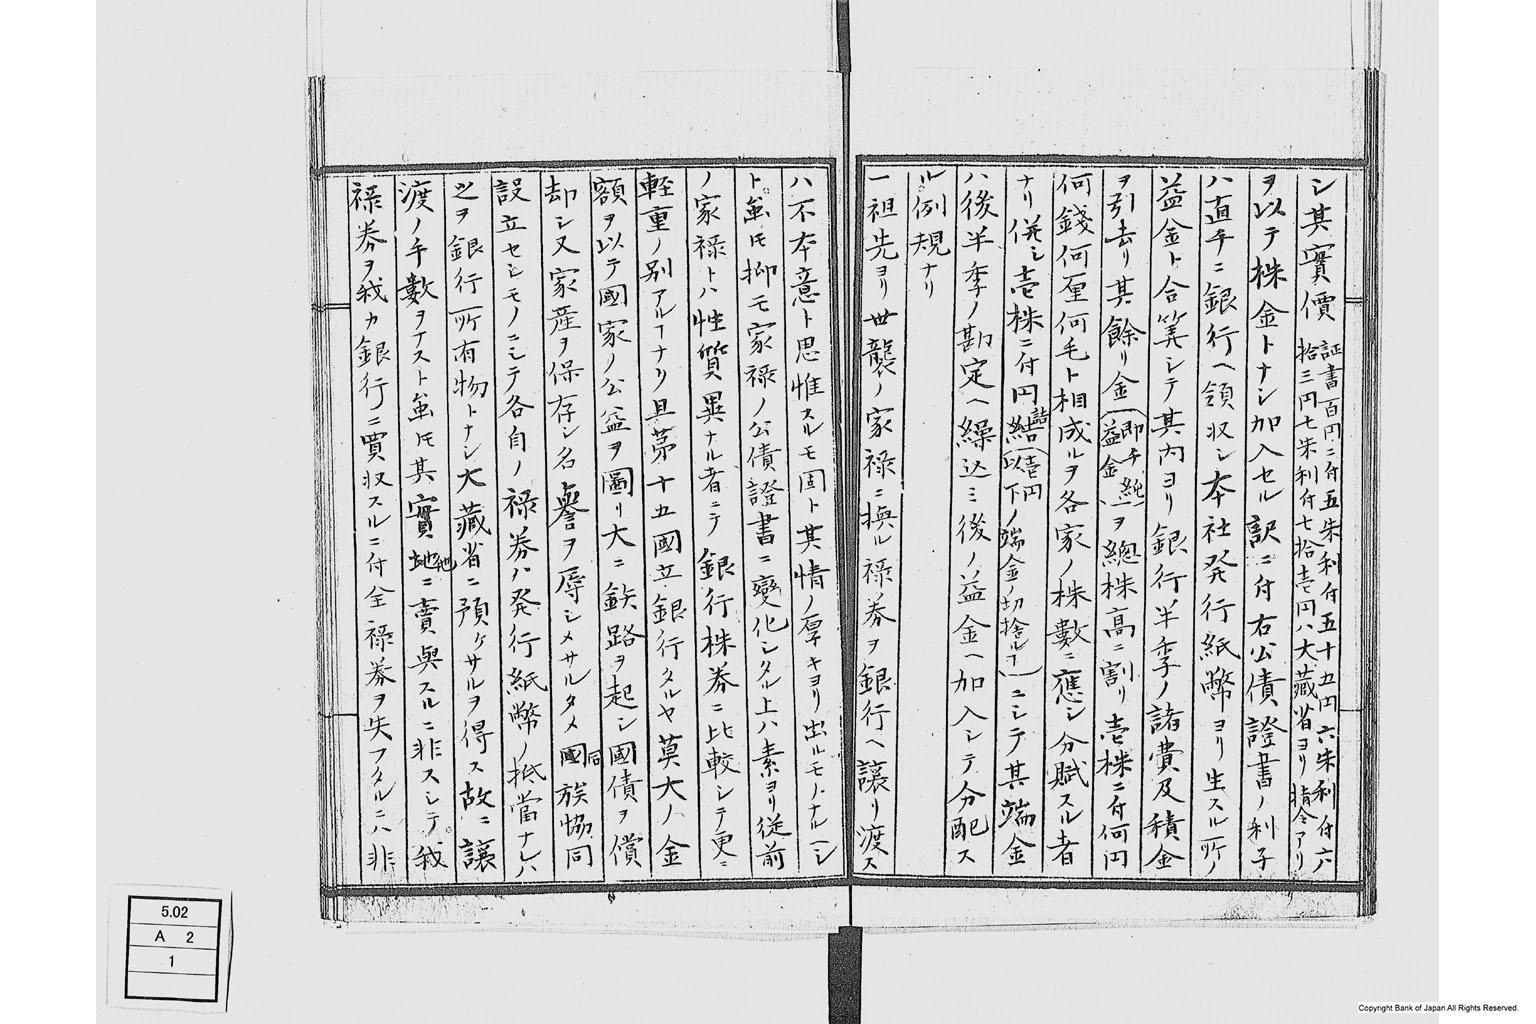 シ其實價証書百円ニ付五朱利付五十五円六朱利付六
拾三円七朱利付七拾壱円ハ大藏省ヨリ精令アリ
ヲ以テ株金トナシ加入セル訳ニ付右公債證書ノ利子
ハ直チニ銀行ヘ領収シ本社発行紙幣ヨリ生スル所ノ
益金ト合算シテ其内ヨリ銀行半季ノ諸費及積金
ヲ引去リ其餘リ金(即チ純益金)ヲ總株高ニ割リ壱株ニ付何円
何錢何厘何毛ト相成ルヲ各家ノ株數ニ應シ分賦スル者
ナリ併シ壱株ニ付円結詰(壱円以下ノ端金ノ切捨ルヿ)ニシテ其端金
ハ後半季ノ勘定ヘ繰込ミ後ノ益金ヘ加入シテ分配ス
ル例規ナリ
一祖先ヨリ世襲ノ家禄ニ換ル禄券ヲ銀行ヘ讓リ渡ス
ハ不本意ト思惟スルモ固ト其情ノ厚キヨリ出ルモノナルヘシ
ト虽𪜈抑モ家禄ノ公債證書ニ變化シタル上ハ素ヨリ従前
ノ家禄トハ性質異ナル者ニテ銀行株券ニ比較シテ更ニ
軽重ノ別アルヿナリ且第十五國立銀行タルヤ莫大ノ金
額ヲ以テ國家ノ公益ヲ圖リ大ニ鉄路ヲ起シ國債ヲ償
却シ又家産ヲ保存シ名譽ヲ辱シメサルタメ同族協同
設立セシモノニシテ各自ノ禄券ハ発行紙幣ノ抵當ナレハ
之ヲ銀行所有物トナシ大藏省ニ預ケサルヲ得ス故ニ讓
渡ノ手數ヲナスト虽𪜈其實他ニ賣與スルニ非スシテ我
禄券ヲ我カ銀行ニ買収スルニ付全禄券ヲ失フタルニハ非
5.02
A 2
1
Copyright Bank of Japan All Rights Reserved.